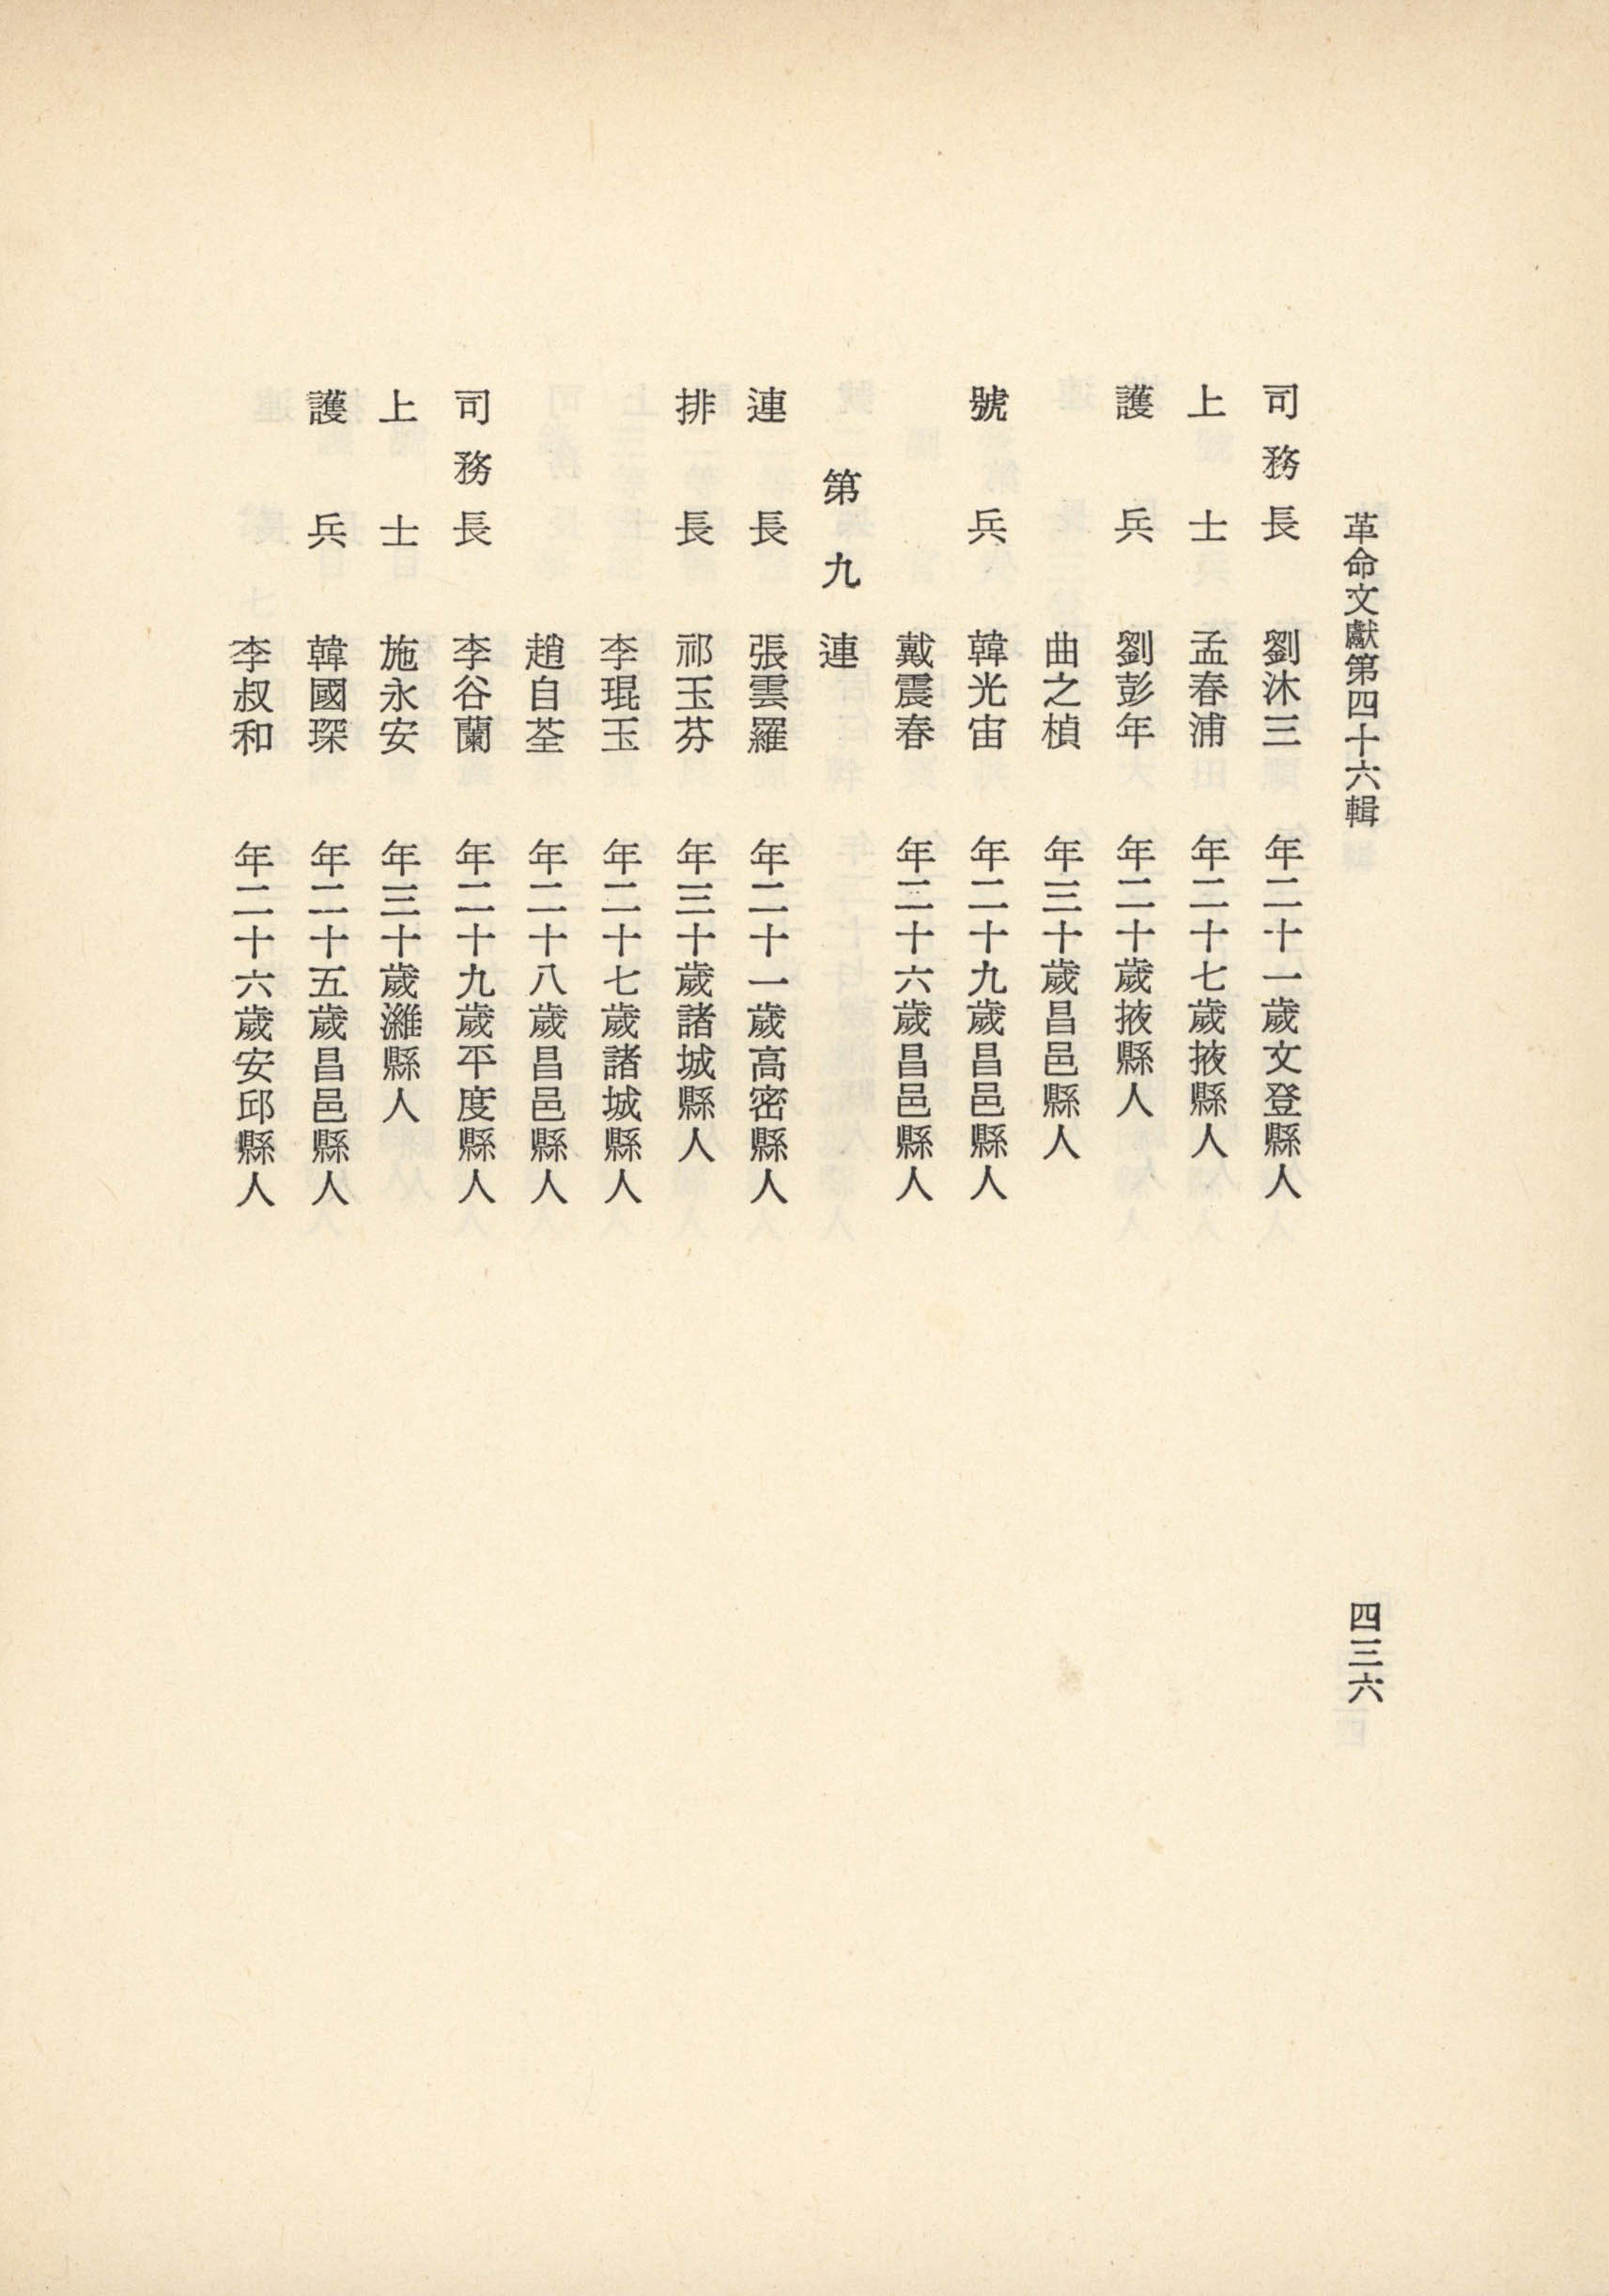 革命文獻第四十六輯
四三六
司務長 劉沐三 年二十一歲文登縣人
上士 孟春浦 年二十七歲掖縣人
護兵 劉彭年 年二十歲掖縣人
曲之楨 年三十歲昌邑縣人
號兵 韓光宙 年二十九歲昌邑縣人
戴震春 年二十六歲昌邑縣人
第九連
連長 張雲羅 年二十一歲高密縣人
排長 祁玉芬 年三十歲諸城縣人
李琨玉 年二十七歲諸城縣人
趙自荃 年二十八歲昌邑縣人
司務長 李谷蘭 年二十九歲平度縣人
上士 施永安 年三十歲濰縣人
護兵 韓國琛 年二十五歲昌邑縣人
李叔和 年二十六歲安邱縣人